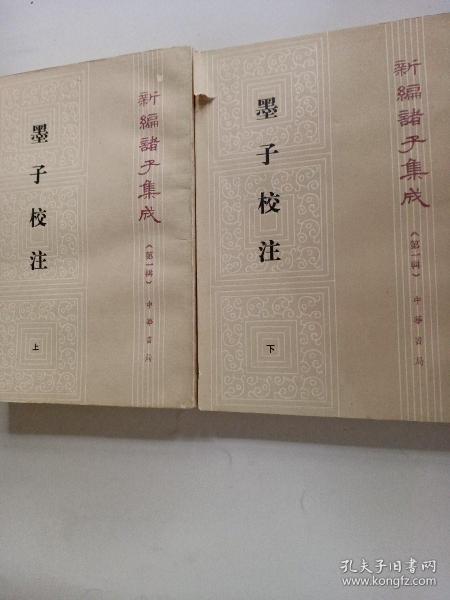 新編諸子集成
（第一輯）
中華書局
墨子校注
上
新編諸子集成
（第一輯）
中華書局
墨子校注
下
孔夫子旧书网
www.kongfz.com